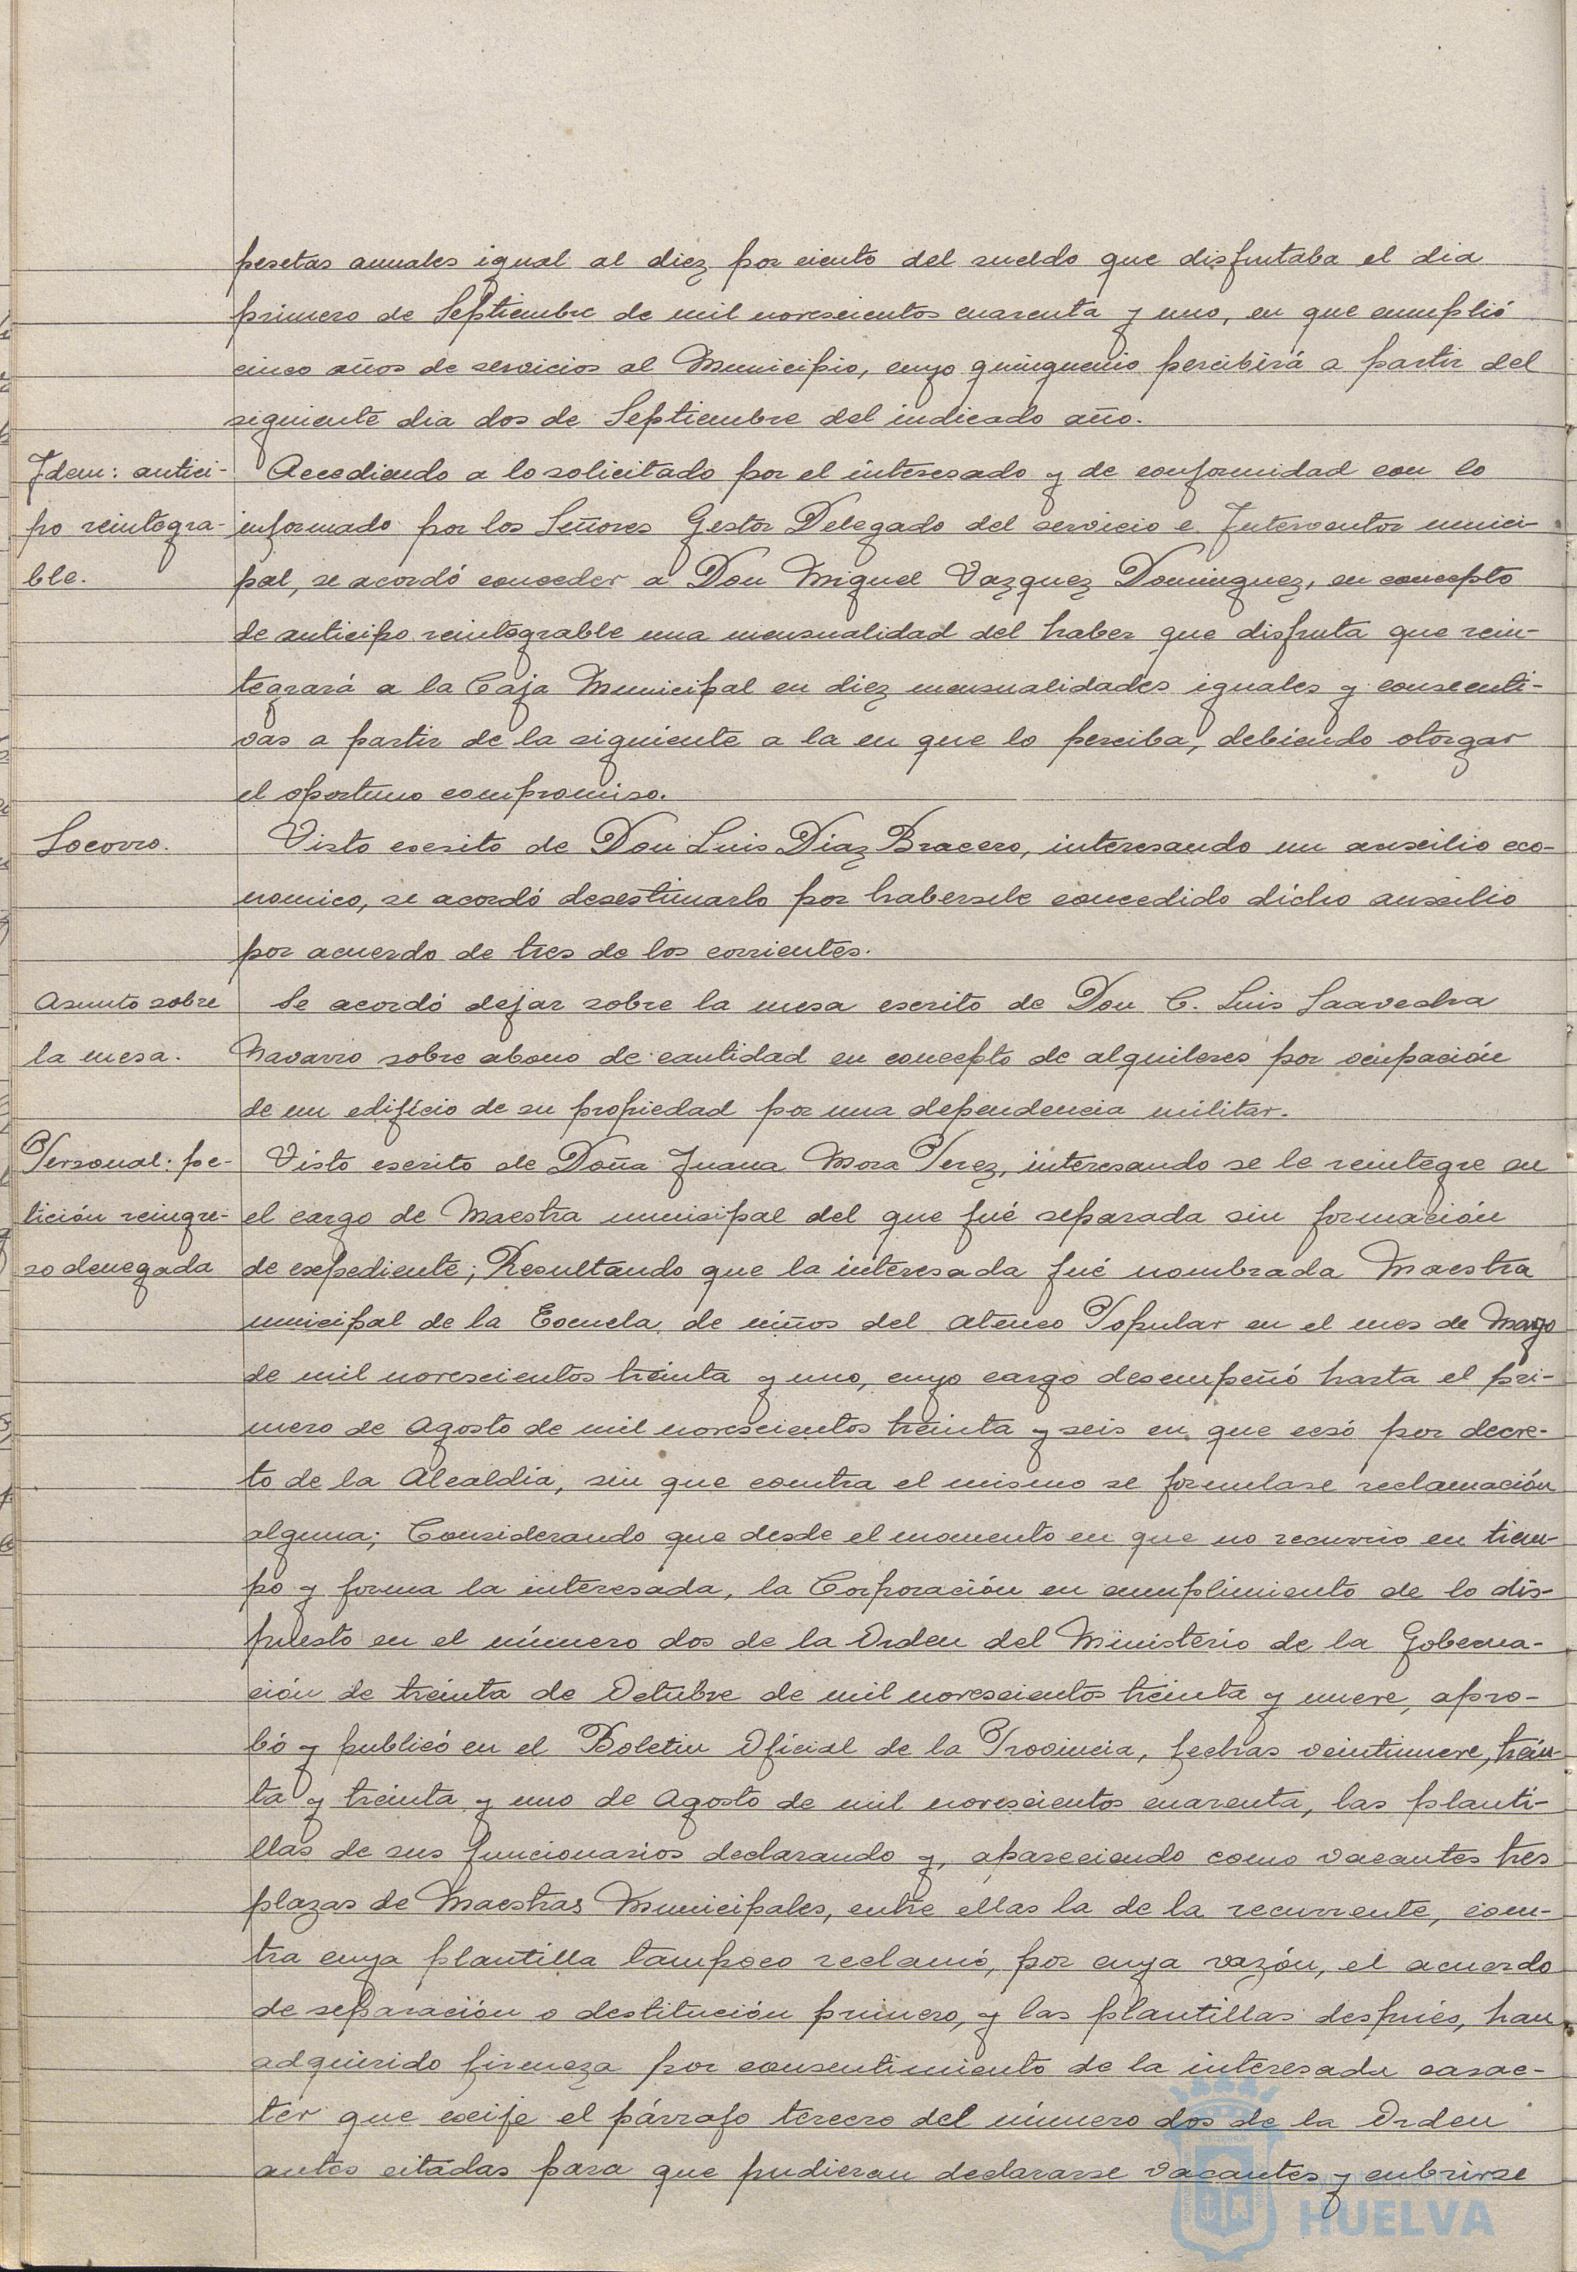 pesetas anuales igual al diez por ciento del sueldo que disfrutaba el dia
primero de Septiembre de mil novescientos cuarenta y uno, en que cumplió
cinco años de servicios al Municipio, cuyo quinquenio percibirá a partir del
siguiente dia dos de Septiembre del indicado año.
Idem: antici- Accediendo a lo solicitado por el interesado y de conformidad con lo
po reintegra- informado por los Señores Gestor Delegado del servicio e Interventor munici-
ble. pal, se acordó conceder a Don Miguel Vazquez Dominguez, en concepto
de anticipo reintegrable una mensualidad del haber que disfruta que rein-
tegrará a la Caja Municipal en diez mensualidades iguales y consecuti-
vas a partir de la siguiente a la en que lo perciba, debiendo otorgar
el oportuno compromiso.
Socorro. Visto escrito de Don Luis Diaz Bracero, interesando un auxilio eco-
nomico, se acordó desestimarlo por habersele concedido dicho auxilio
por acuerdo de tres de los corrientes.
Asunto sobre Se acordó dejar sobre la mesa escrito de Don C. Luis Saavedra
la mesa. Navarro sobre abono de cantidad en concepto de alquileres por ocupación
de un edificio de su propiedad por una dependencia militar.
Personal: pe- Visto escrito de Doña Juana Mora Perez, interesando se le reintegre en
tición reingre- el cargo de Maestra municipal del que fué separada sin formación
so denegada de expediente; Resultando que la interesada fué nombrada Maestra
municipal de la Escuela de niños del Ateneo Popular en el mes de Mayo
de mil novescientos treinta y uno, cuyo cargo desempeñó hasta el pri-
mero de Agosto de mil novescientos treinta y seis en que cesó por decre-
to de la Alcaldia, sin que contra el mismo se formulase reclamación
alguna; Considerando que desde el momento en que no recurrio en tiem-
po y forma la interesada, la Corporación en cumplimiento de lo dis-
puesto en el número dos de la Orden del Ministerio de la Goberna-
ción de treinta de Octubre de mil novescientos treinta y nueve, apro-
bó y publicó en el Boletin Oficial de la Provincia, fechas veintinueve, trein-
ta y treinta y uno de Agosto de mil novescientos cuarenta, las planti-
llas de sus funcionarios declarando y, apareciendo como vacantes tres
plazas de Maestras Municipales, entre ellas la de la recurrente, con-
tra cuya plantilla tampoco reclamó, por cuya razón, el acuerdo
de separación o destitución primero, y las plantillas despues, han
adquirido firmeza por consentimiento de la interesada carac-
ter que exije el párrafo tercero del número dos de la Orden
antes citadas para que pudieran declararse vacantes y cubrirse
HUELVA